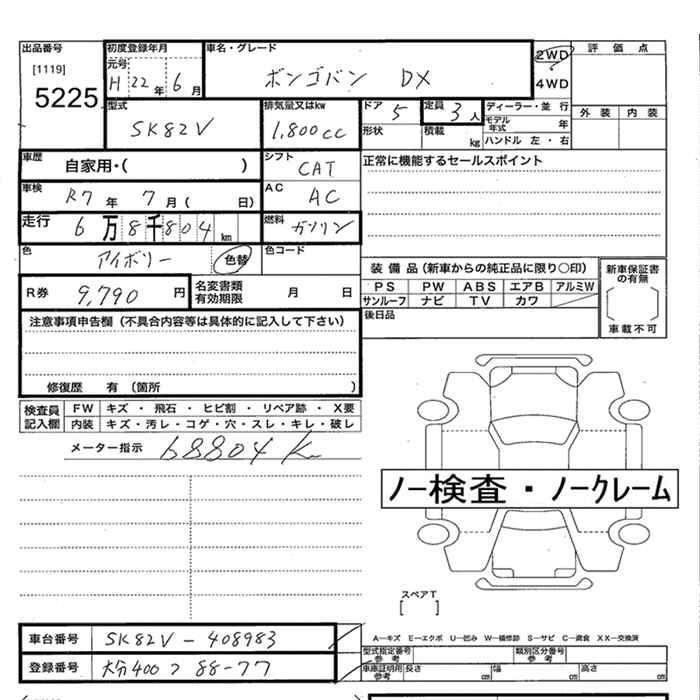 出品番号 初度登録年月 車名・グレード 2WD 評価点
[1119] 元号 4WD
5225 H 22年 6月 ボンゴバン DX
型式 排気量又はkw ドア 定員 ディーラー・並行 外装 内装
SK82V 1,800cc 5 3人 モデル年式 年
形状 積載 kg ハンドル 左・右
車歴 自家用・( ) シフト CAT 正常に機能するセールスポイント
車検 R7年 7月( 日) AC AC
走行 6万8千804km 燃料 ガソリン
色 アイボリー 色替 色コード
装備品(新車からの純正品に限り○印) 新車保証書の有無
R券 9,790円 名変書類有効期限 月 日
PS PW ABS エアB アルミW
サンルーフ ナビ TV カワ 車載不可
注意事項申告欄(不具合内容等は具体的に記入して下さい) 後日品
修復歴 有(箇所 )
検査員記入欄 FW キズ・飛石・ヒビ割・リペア跡・X要
内装 キズ・汚レ・コゲ・穴・スレ・キレ・破レ
メーター指示 68804K
ノー検査・ノークレーム
スペアT
[ ]
車台番号 SK82V-408983
A-キズ E-エクボ U-凹み W-補修跡 S-サビ C-腐食 XX-交換済
型式指定番号 参考 類別区分番号 参考
登録番号 大分400つ 88-77
車庫証明用 参考 長さ cm 幅 cm 高さ cm